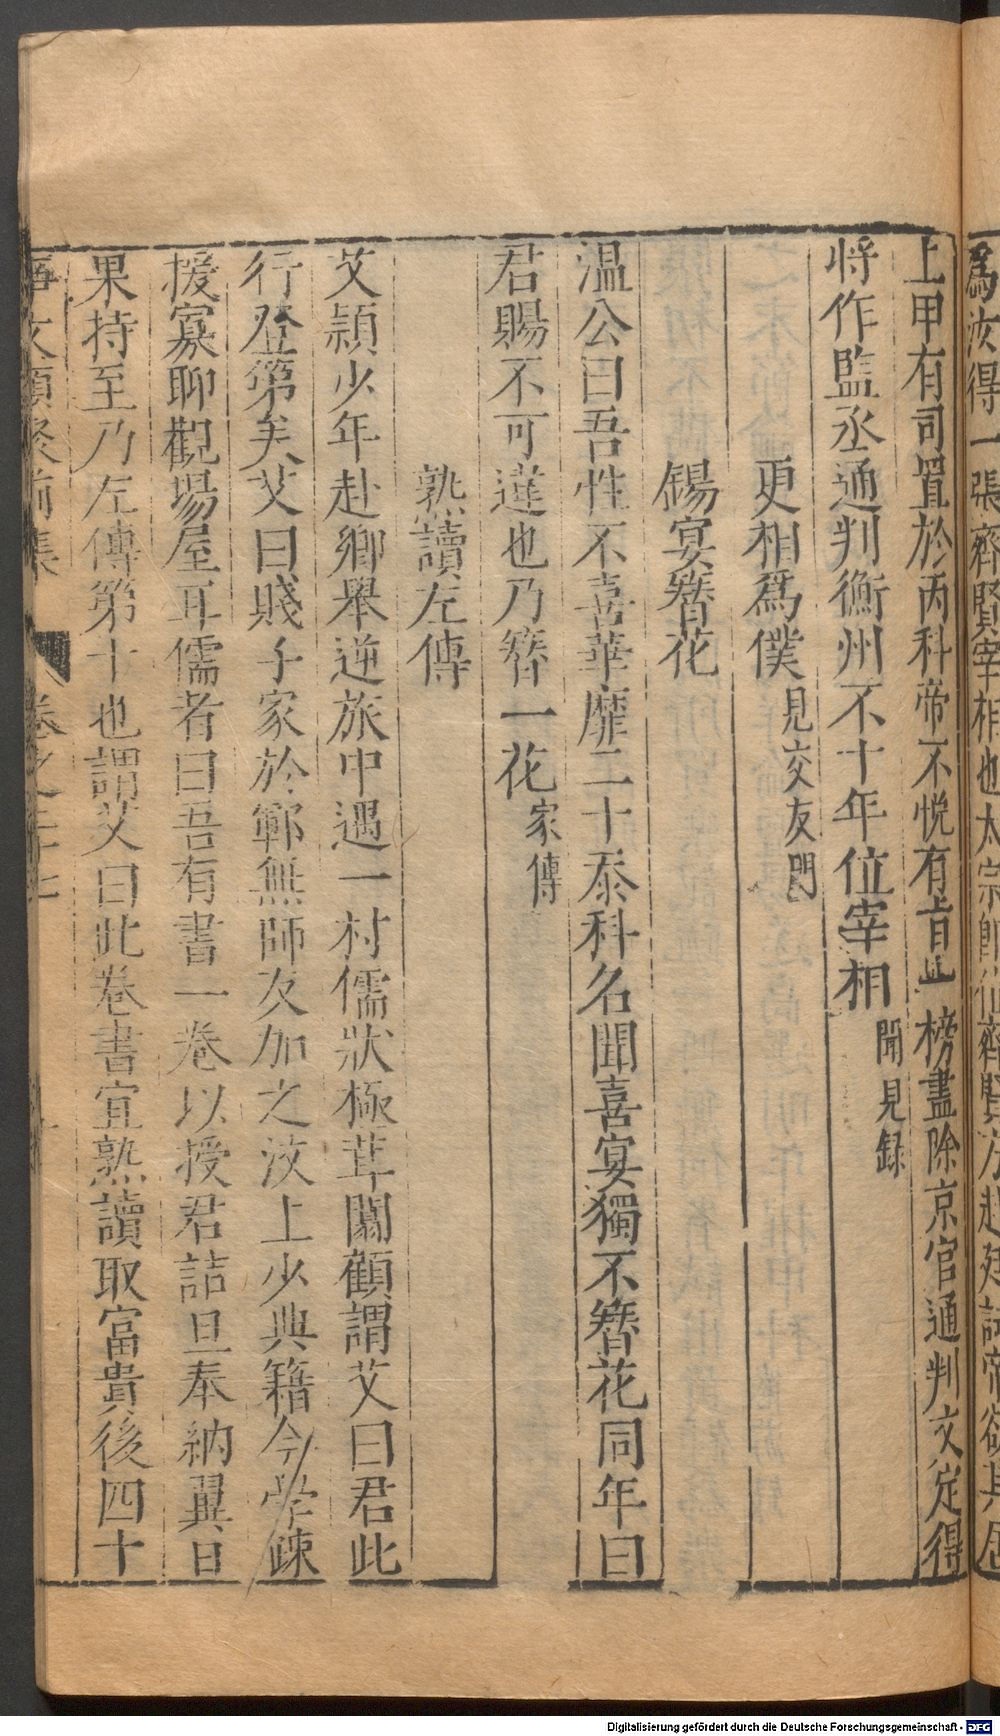 為汝得一張齊賢宰相也太宗即位齊賢方赴廷試帝欲其居
上甲有司置於丙科帝不悅有旨此榜盡除京官通判文定得
將作監丞通判衡州不十年位宰相聞見録
更相為僕見交友門
錫宴簪花
温公曰吾性不喜華靡二十忝科名聞喜宴獨不簪花同年曰
君賜不可違也乃簪一花家傳
熟讀左傳
艾穎少年赴鄉舉逆旅中遇一村儒狀極茸闒顧謂艾曰君此
行登第矣艾曰賤子家於鄆無師友加之汶上少典籍今學疎
援寡聊觀場屋耳儒者曰吾有書一卷以授君詰旦奉納翼日
果持至乃左傳第十也謂艾曰此卷書宜熟讀取富貴後四十
事文類聚前集 卷之二十七
Digitalisierung gefördert durch die Deutsche Forschungsgemeinschaft - DFG